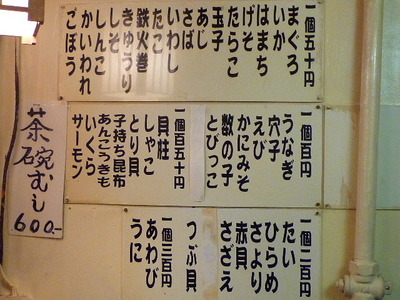 一個五十円
まぐろ
いか
はまち
げそ
たらこ
玉子
あじ
さば
いわし
たこ
鉄火巻
きゅうり
しそ
しんこ
かいわれ
ごぼう
一個百円
うなぎ
穴子
えび
かにみそ
数の子
とびっこ
一個百五十円
貝柱
しゃこ
とり貝
子持ち昆布
あんこうきも
いくら
サーモン
一個二百円
たい
ひらめ
さより
赤貝
さざえ
つぶ貝
一個三百円
あわび
うに
茶碗むし
600.-